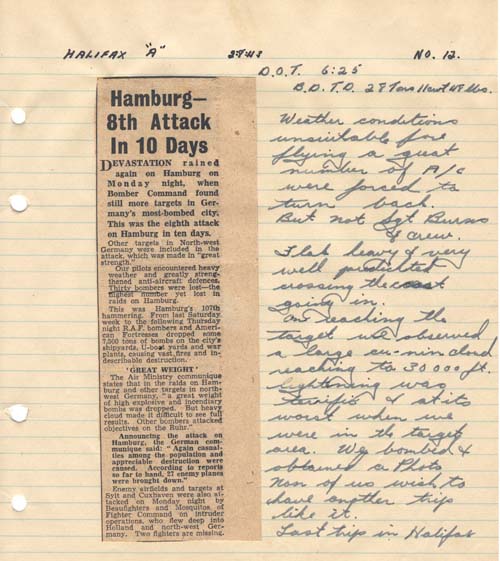 HALIFAX "A" 2-8-43 NO. 12.
D.O.T. 6:25
B.D.T.D. 28 Tons 11 cwt 48 lbs.
Hamburg—
8th Attack
In 10 Days
DEVASTATION rained
again on Hamburg on
Monday night, when
Bomber Command found
still more targets in Ger-
many's most-bombed city.
This was the eighth attack
on Hamburg in ten days.
Other targets in North-west
Germany were included in the
attack, which was made in "great
strength."
Our pilots encountered heavy
weather and greatly streng-
thened anti-aircraft defences.
Thirty bombers were lost—the
highest number yet lost in
raids on Hamburg.
This was Hamburg's 107th
hammering. From last Saturday
week to the following Thursday
night R.A.F. bombers and Ameri-
can Fortresses dropped some
7,500 tons of bombs on the city's
shipyards, U-boat yards and war
plants, causing vast fires and in-
describable destruction.
'GREAT WEIGHT'
The Air Ministry communique
states that in the raids on Ham-
burg and other targets in north-
west Germany, "a great weight
of high explosive and incendiary
bombs was dropped. But heavy
cloud made it difficult to see full
results. Other bombers attacked
objectives on the Ruhr."
Announcing the attack on
Hamburg, the German com-
munique said: "Again casual-
ties among the population and
appreciable destruction were
caused. According to reports
so far to hand, 27 enemy planes
were brought down."
Enemy airfields and targets at
Sylt and Cuxhaven were also at-
tacked on Monday night by
Beaufighters and Mosquitos of
Fighter Command on intruder
operations, who flew deep into
Holland and north-west Ger-
many. Two fighters are missing.
Weather conditions
unsuitable for
flying a great
number of A/C
were forced to
turn back.
But not Sgt Burns
& crew.
Flak heavy & very
well predicted
crossing the coast
going in.
On reaching the
target we observed
a large cu-nim cloud
reaching to 30000 ft.
lightning was
terrific & at its
worst when we
were in the target
area. We bombed &
obtained a Photo
Non of us wish to
have another trip
like it.
Last trip in Halifax